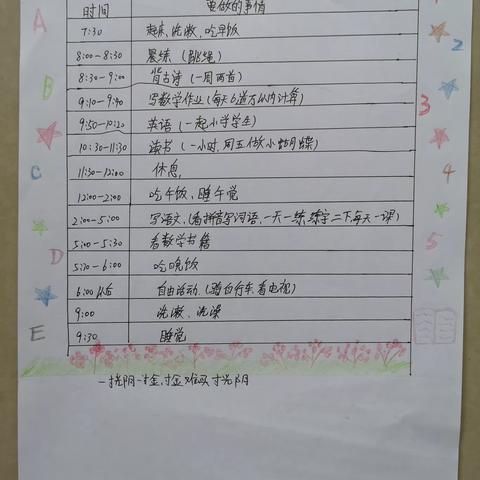 时间 要做的事情
7:30 起床,洗漱,吃早饭
8:00-8:30 晨练(跳绳)
8:30-9:00 背古诗(一周两首)
9:10-9:40 写数学作业(每天6道万以内计算)
9:50-10:20 英语(一起小学学生)
10:30-11:30 读书(一小时,周五做小蝴蝶)
11:30-12:00 休息,
12:00-2:00 吃午饭、睡午觉
2:00-5:00 写语文,(看拼音写词语,一天一练,练字二下每天一课)
5:00-5:30 看数学书籍
5:30-6:00 吃晚饭
6:00以后 自由活动,(踏自行车,看电视)
9:00 洗漱、洗澡
9:30 睡觉
A
B
C
D
E
2
3
4
5
一寸光阴一寸金,寸金难买寸光阴